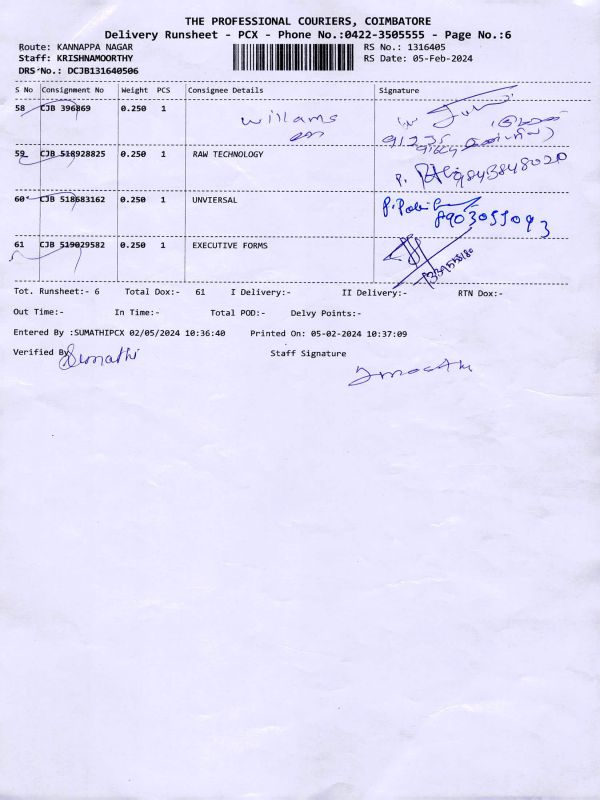 THE PROFESSIONAL COURIERS, COIMBATORE
Delivery Runsheet - PCX - Phone No.:0422-3505555 - Page No.:6
Route: KANNAPPA NAGAR RS No.: 1316405
Staff: KRISHNAMOORTHY RS Date: 05-Feb-2024
DRS No.: DCJB131640506
S No Consignment No Weight PCS Consignee Details Signature
58 CJB 396869 0.250 1 Williams
59 CJB 518928825 0.250 1 RAW TECHNOLOGY 9843848020
60 CJB 518683162 0.250 1 UNVIERSAL 8903055093
61 CJB 519029582 0.250 1 EXECUTIVE FORMS
Tot. Runsheet:- 6 Total Dox:- 61 I Delivery:- II Delivery:- RTN Dox:-
Out Time:- In Time:- Total POD:- Delvy Points:-
Entered By :SUMATHIPCX 02/05/2024 10:36:40 Printed On: 05-02-2024 10:37:09
Verified By Sumathi Staff Signature